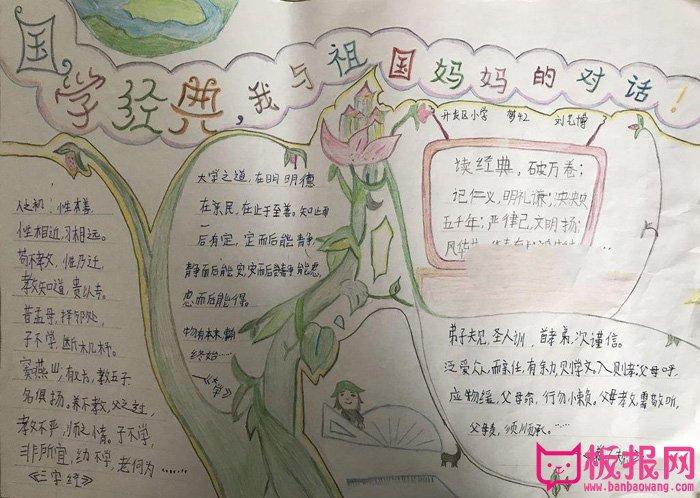 国学经典，我与祖国妈妈的对话！
开发区小学
人之初，性本善，
性相近，习相远。
苟不教，性乃迁，
教之道，贵以专。
昔孟母，择邻处，
子不学，断机杼。
窦燕山，有义方，教五子
名俱扬。养不教，父之过，
教不严，师之惰。子不学，
非所宜，幼不学，老何为……
《三字经》
大学之道，在明明德
在亲民，在止于至善。知止而
后有定，定而后能静，
静而后能安，安而后能虑，
虑而后能得。
物有本末，
终始……
读经典，破万卷；
记仁义，明礼谦；泱泱
五千年；严律己，文明扬；
弟子规，圣人训，首孝弟，次谨信。
泛爱众，而亲仁，有余力，则学文，入则孝，父母呼，
应勿缓，父母命，行勿懒，父母教，须敬听，
父母责，须顺承。……
板报网
www.banbaowang.com